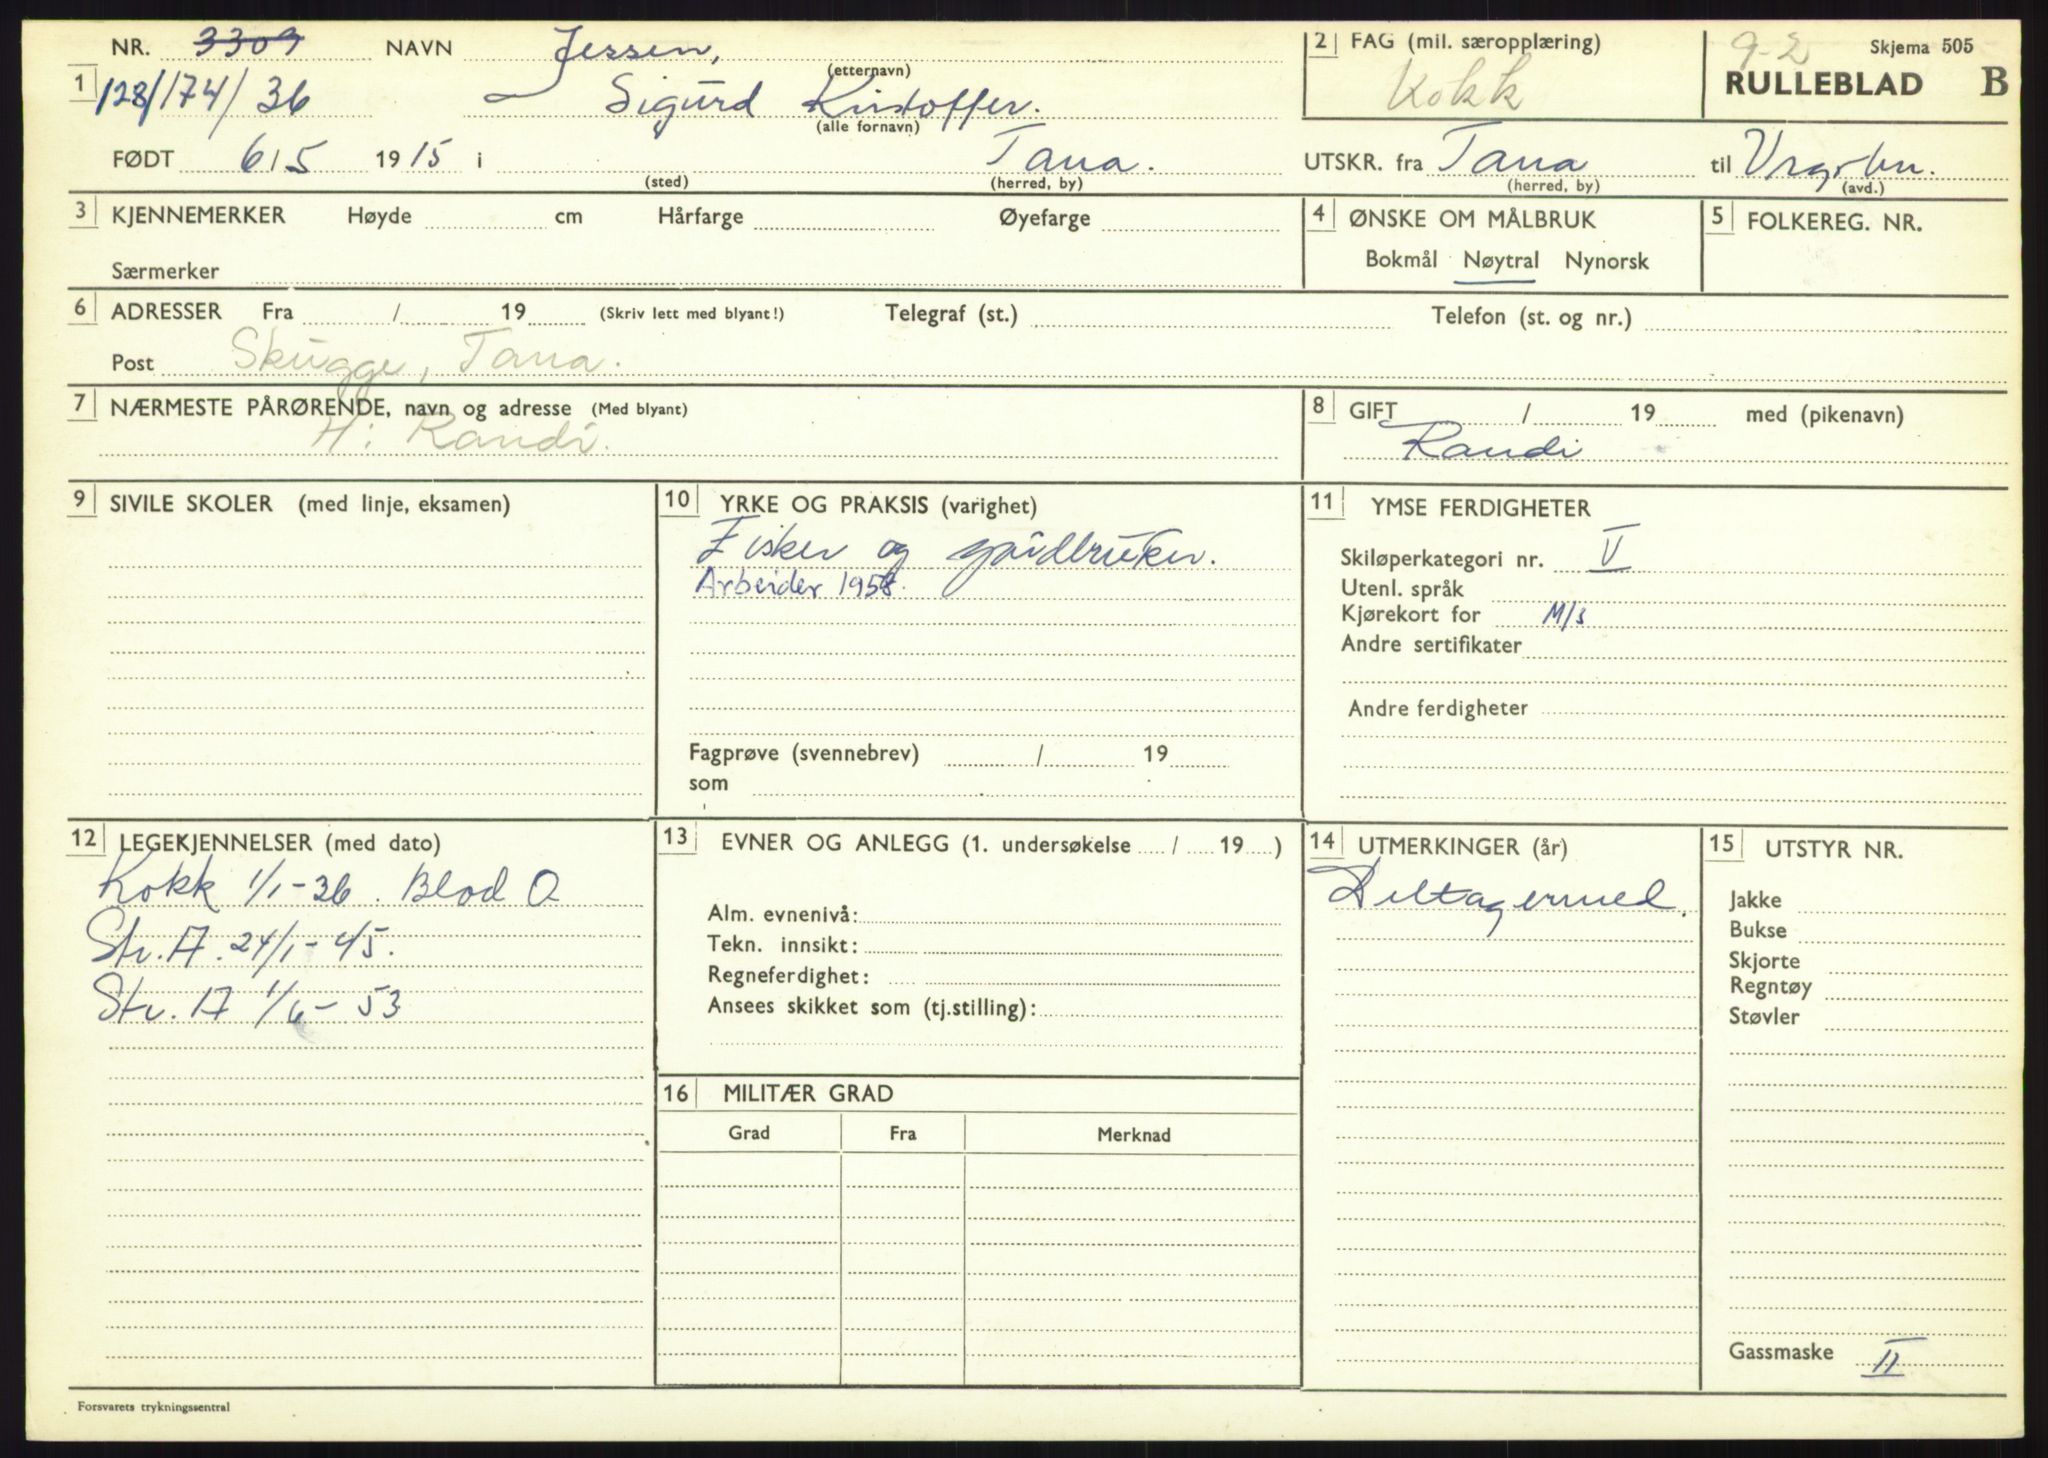 NR. 3309 NAVN Jessen, (etternavn)
1 128/174/36 Sigurd Kristoffer. (alle fornavn)
FØDT 6/5 1915 i (sted) Tana. (herred, by)
2 FAG (mil. særopplæring)
Kokk
9-2 Skjema 505
RULLEBLAD B
UTSKR. fra Tana (herred, by) til (avd.)
3 KJENNEMERKER Høyde cm Hårfarge Øyefarge
Særmerker
4 ØNSKE OM MÅLBRUK
Bokmål Nøytral Nynorsk
5 FOLKEREG. NR.
6 ADRESSER Fra / 19 (Skriv lett med blyant!) Telegraf (st.) Telefon (st. og nr.)
Post Skugge, Tana.
7 NÆRMESTE PÅRØRENDE, navn og adresse (Med blyant)
H: Randi.
8 GIFT / 19 med (pikenavn)
Randi
9 SIVILE SKOLER (med linje, eksamen)
10 YRKE OG PRAKSIS (varighet)
Fisker og gårdbruker.
Arbeider 1958.
Fagprøve (svennebrev) / 19
som
11 YMSE FERDIGHETER
Skiløperkategori nr. V
Utenl. språk
Kjørekort for M/s
Andre sertifikater
Andre ferdigheter
12 LEGEKJENNELSER (med dato)
Kokk 1/1-36. Blod O
Str. A. 24/1-45.
Str. A 1/6-53
13 EVNER OG ANLEGG (1. undersøkelse / 19 )
Alm. evnenivå:
Tekn. innsikt:
Regneferdighet:
Ansees skikket som (tj.stilling):
14 UTMERKINGER (år)
Deltagermed.
15 UTSTYR NR.
Jakke
Bukse
Skjorte
Regntøy
Støvler
Gassmaske II
16 MILITÆR GRAD
Grad Fra Merknad
Forsvarets trykningssentral